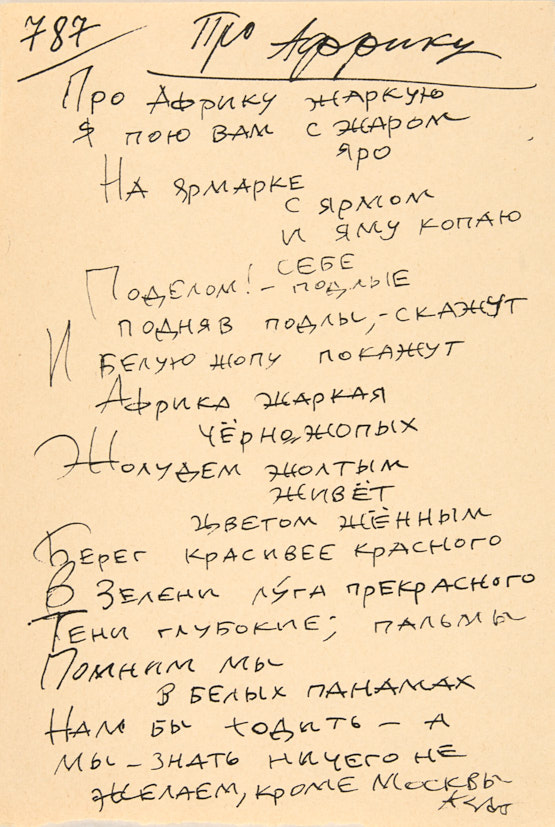 787 Про Африку
Про Африку жаркую
я пою вам с жаром
яро
На ярмарке
с ярмом
и яму копаю
себе
Поделом! – подлые
подняв подлы, – скажут
И белую жопу покажут
Африка жаркая
чёрно, жопых
Жолудем жолтым
живёт
цветом жённым
Берег красивее красного
В зелени луга прекрасного
Тени глубокие; пальмы
Помним мы
в белых панамах
Нам бы ходить – а
мы – знать ничего не
желаем, кроме Москвы